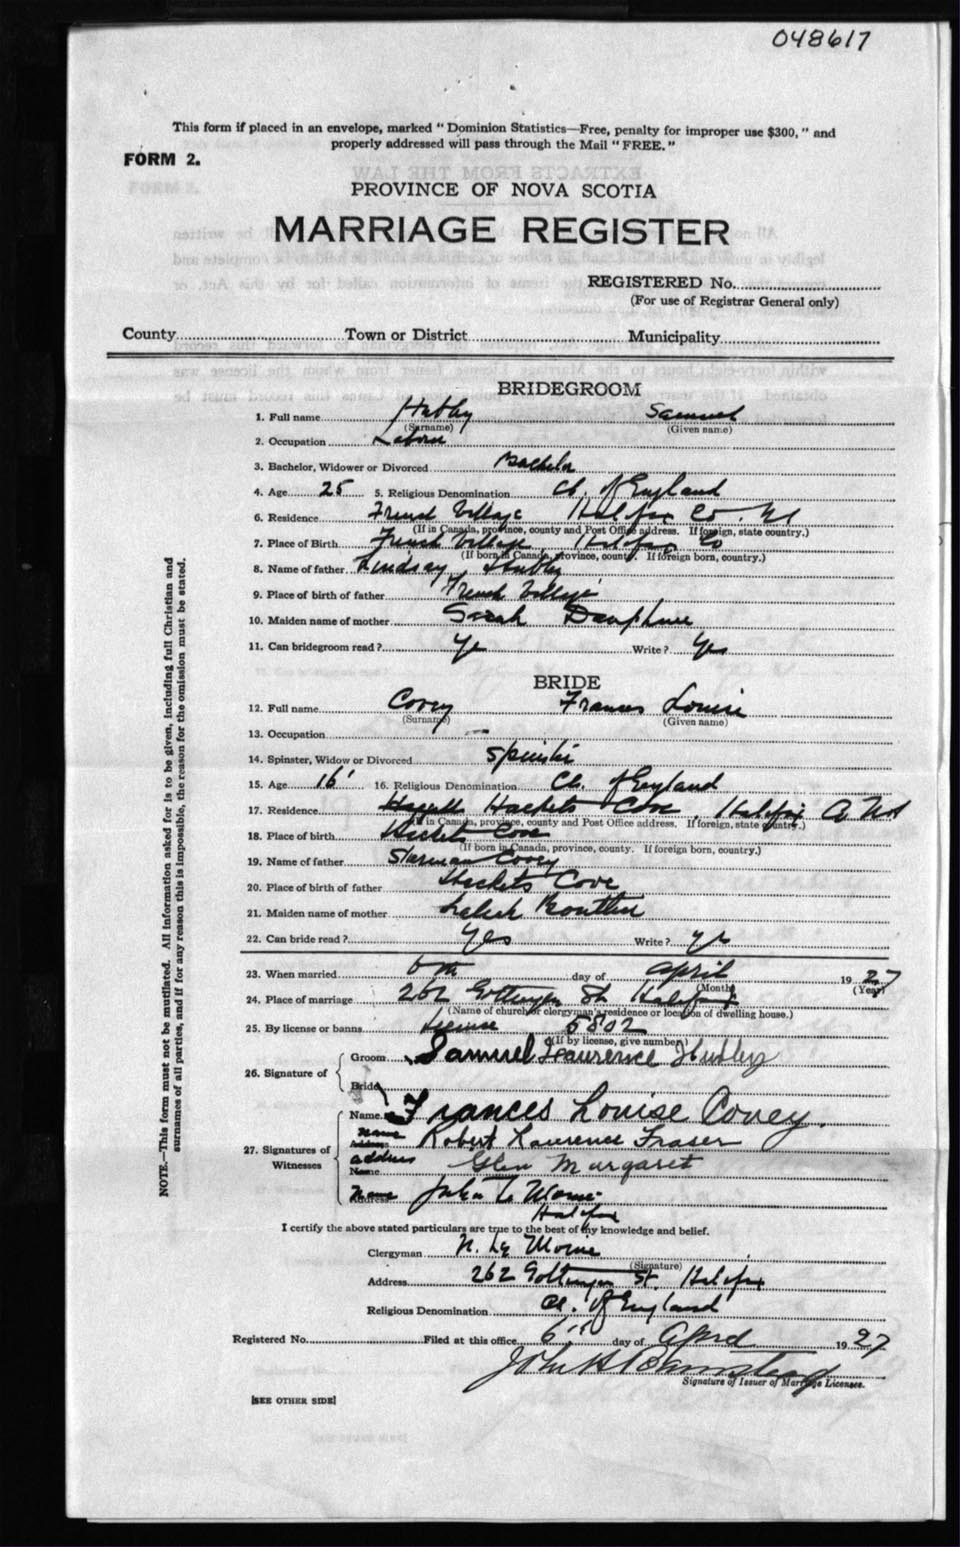 048617
This form if placed in an envelope, marked "Dominion Statistics—Free, penalty for improper use $300," and
properly addressed will pass through the Mail "FREE."
FORM 2.
PROVINCE OF NOVA SCOTIA
MARRIAGE REGISTER
REGISTERED No.
(For use of Registrar General only)
County Town or District Municipality
BRIDEGROOM
1. Full name Hubley Samuel
(Surname) (Given name)
2. Occupation Labour
3. Bachelor, Widower or Divorced Bachelor
4. Age 25 5. Religious Denomination Ch. of England
6. Residence French Village Halifax Co. NS
(If in Canada, province, county and Post Office address. If foreign, state country.)
7. Place of Birth French Village Halifax Co
(If born in Canada, province, county. If foreign born, country.)
8. Name of father Lindsay Hubley
9. Place of birth of father French Village
10. Maiden name of mother Sarah Dauphinee
11. Can bridegroom read? Yes Write? Yes
BRIDE
12. Full name Covey Frances Louise
(Surname) (Given name)
13. Occupation —
14. Spinster, Widow or Divorced Spinster
15. Age 16 16. Religious Denomination Ch. of England
17. Residence Hackets Cove, Halifax Co NS
(If in Canada, province, county and Post Office address. If foreign, state country.)
18. Place of birth Hackets Cove
(If born in Canada, province, county. If foreign born, country.)
19. Name of father Covey
20. Place of birth of father Hackets Cove
21. Maiden name of mother Boutlier
22. Can bride read? Yes Write? Yes
23. When married 6th day of April 1927
(Month) (Year)
24. Place of marriage 262 Gottingen St Halifax
(Name of church or clergyman's residence or location of dwelling house.)
25. By license or banns License 5802
(If by license, give number)
26. Signature of Groom Samuel Lawrence Hubley
Bride
Name Frances Louise Covey.
27. Signatures of Witnesses
Name Robert Lawrence Fraser
Address Glen Margaret
Name
Name Address
Halifax
I certify the above stated particulars are true to the best of my knowledge and belief.
Clergyman
(Signature)
Address 262 Gottingen St. Halifax
Religious Denomination Ch. of England
Registered No. Filed at this office 6th day of April 1927
John H Barnstead
Signature of Issuer of Marriage Licenses.
[SEE OTHER SIDE]
NOTE.—This form must not be mutilated. All information asked for is to be given, including full Christian and
surnames of all parties, and if for any reason this is impossible, the reason for the omission must be stated.